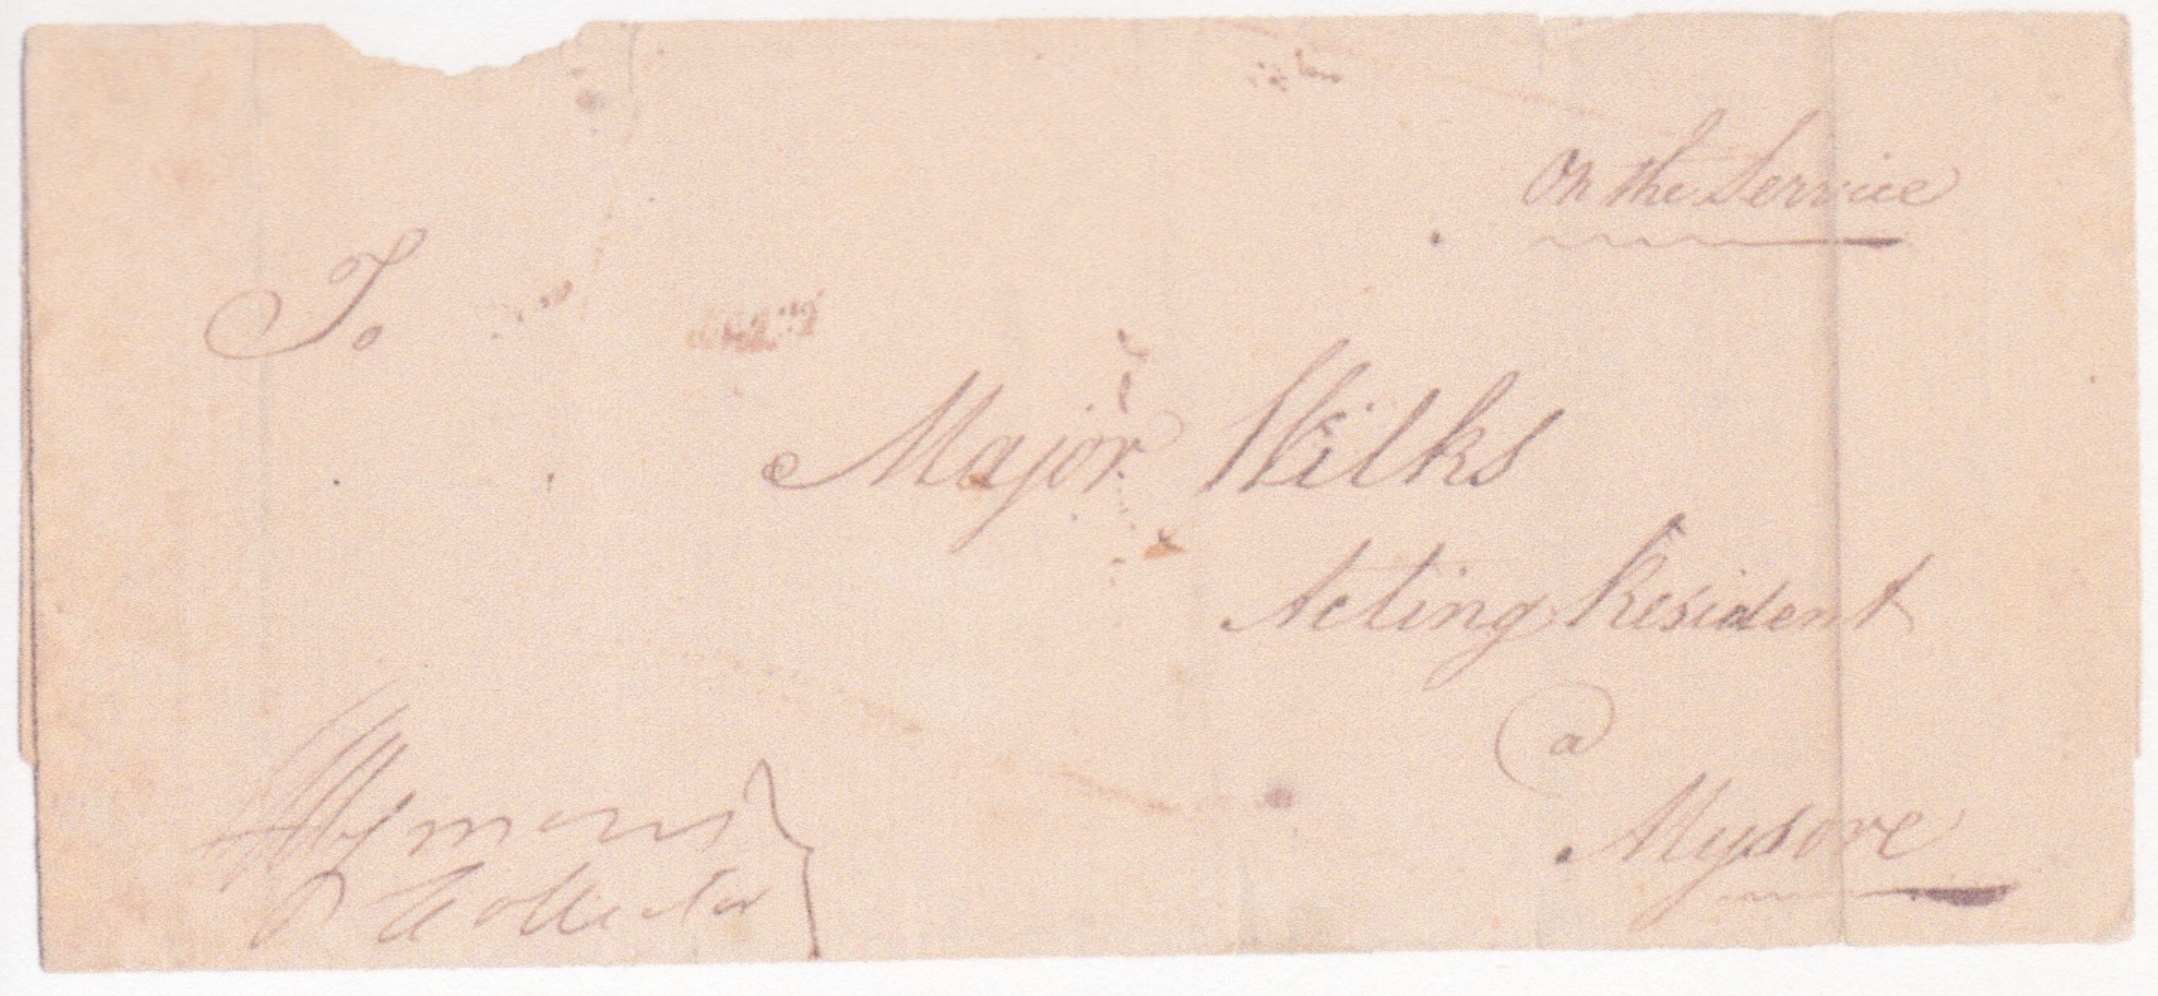 On the Service
To
Major Wilks
Acting Resident
a
Mysore
Collector